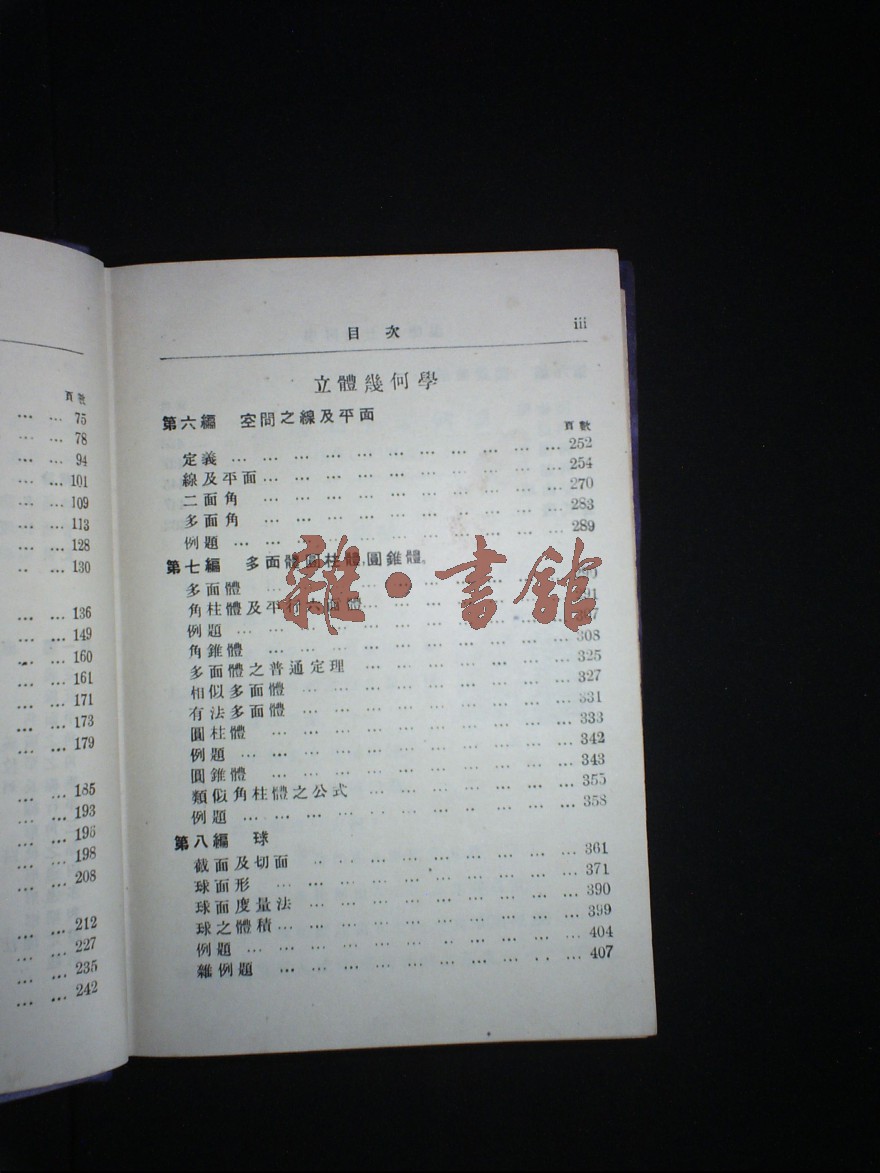 頁數
… … 75
… … 78
… … 94
… … 101
… … 109
… … 113
… … 128
… … 130
… … 136
… … 149
… … 160
… … 161
… … 171
… … 173
… … 179
… … 185
… … 193
… … 196
… … 198
… … 208
… … 212
… … 227
… … 235
… … 242
目次 iii
立體幾何學
第六編 空間之線及平面 頁數
定義 … … … … … … … … … … … 252
線及平面 … … … … … … … … … … 254
二面角 … … … … … … … … … … 270
多面角 … … … … … … … … … … 283
例題 … … … … … … … … … … … 289
第七編 多面體,圓柱體,圓錐體。
多面體 … … … … … … … … … …
角柱體及平行六面體 … … … … … …
例題 … … … … … … … … … … …
角錐體 … … … … … … … … … … 308
多面體之普通定理 … … … … … … … 325
相似多面體 … … … … … … … … … 327
有法多面體 … … … … … … … … … 331
圓柱體 … … … … … … … … … … 333
例題 … … … … … … … … … … … 342
圓錐體 … … … … … … … … … … 343
類似角柱體之公式 … … … … … … … 355
例題 … … … … … … … … … … … 358
第八編 球
截面及切面 … … … … … … … … … 361
球面形 … … … … … … … … … … 371
球面度量法 … … … … … … … … … 390
球之體積 … … … … … … … … … … 399
例題 … … … … … … … … … … … 404
雜例題 … … … … … … … … … … 407
雜·書館